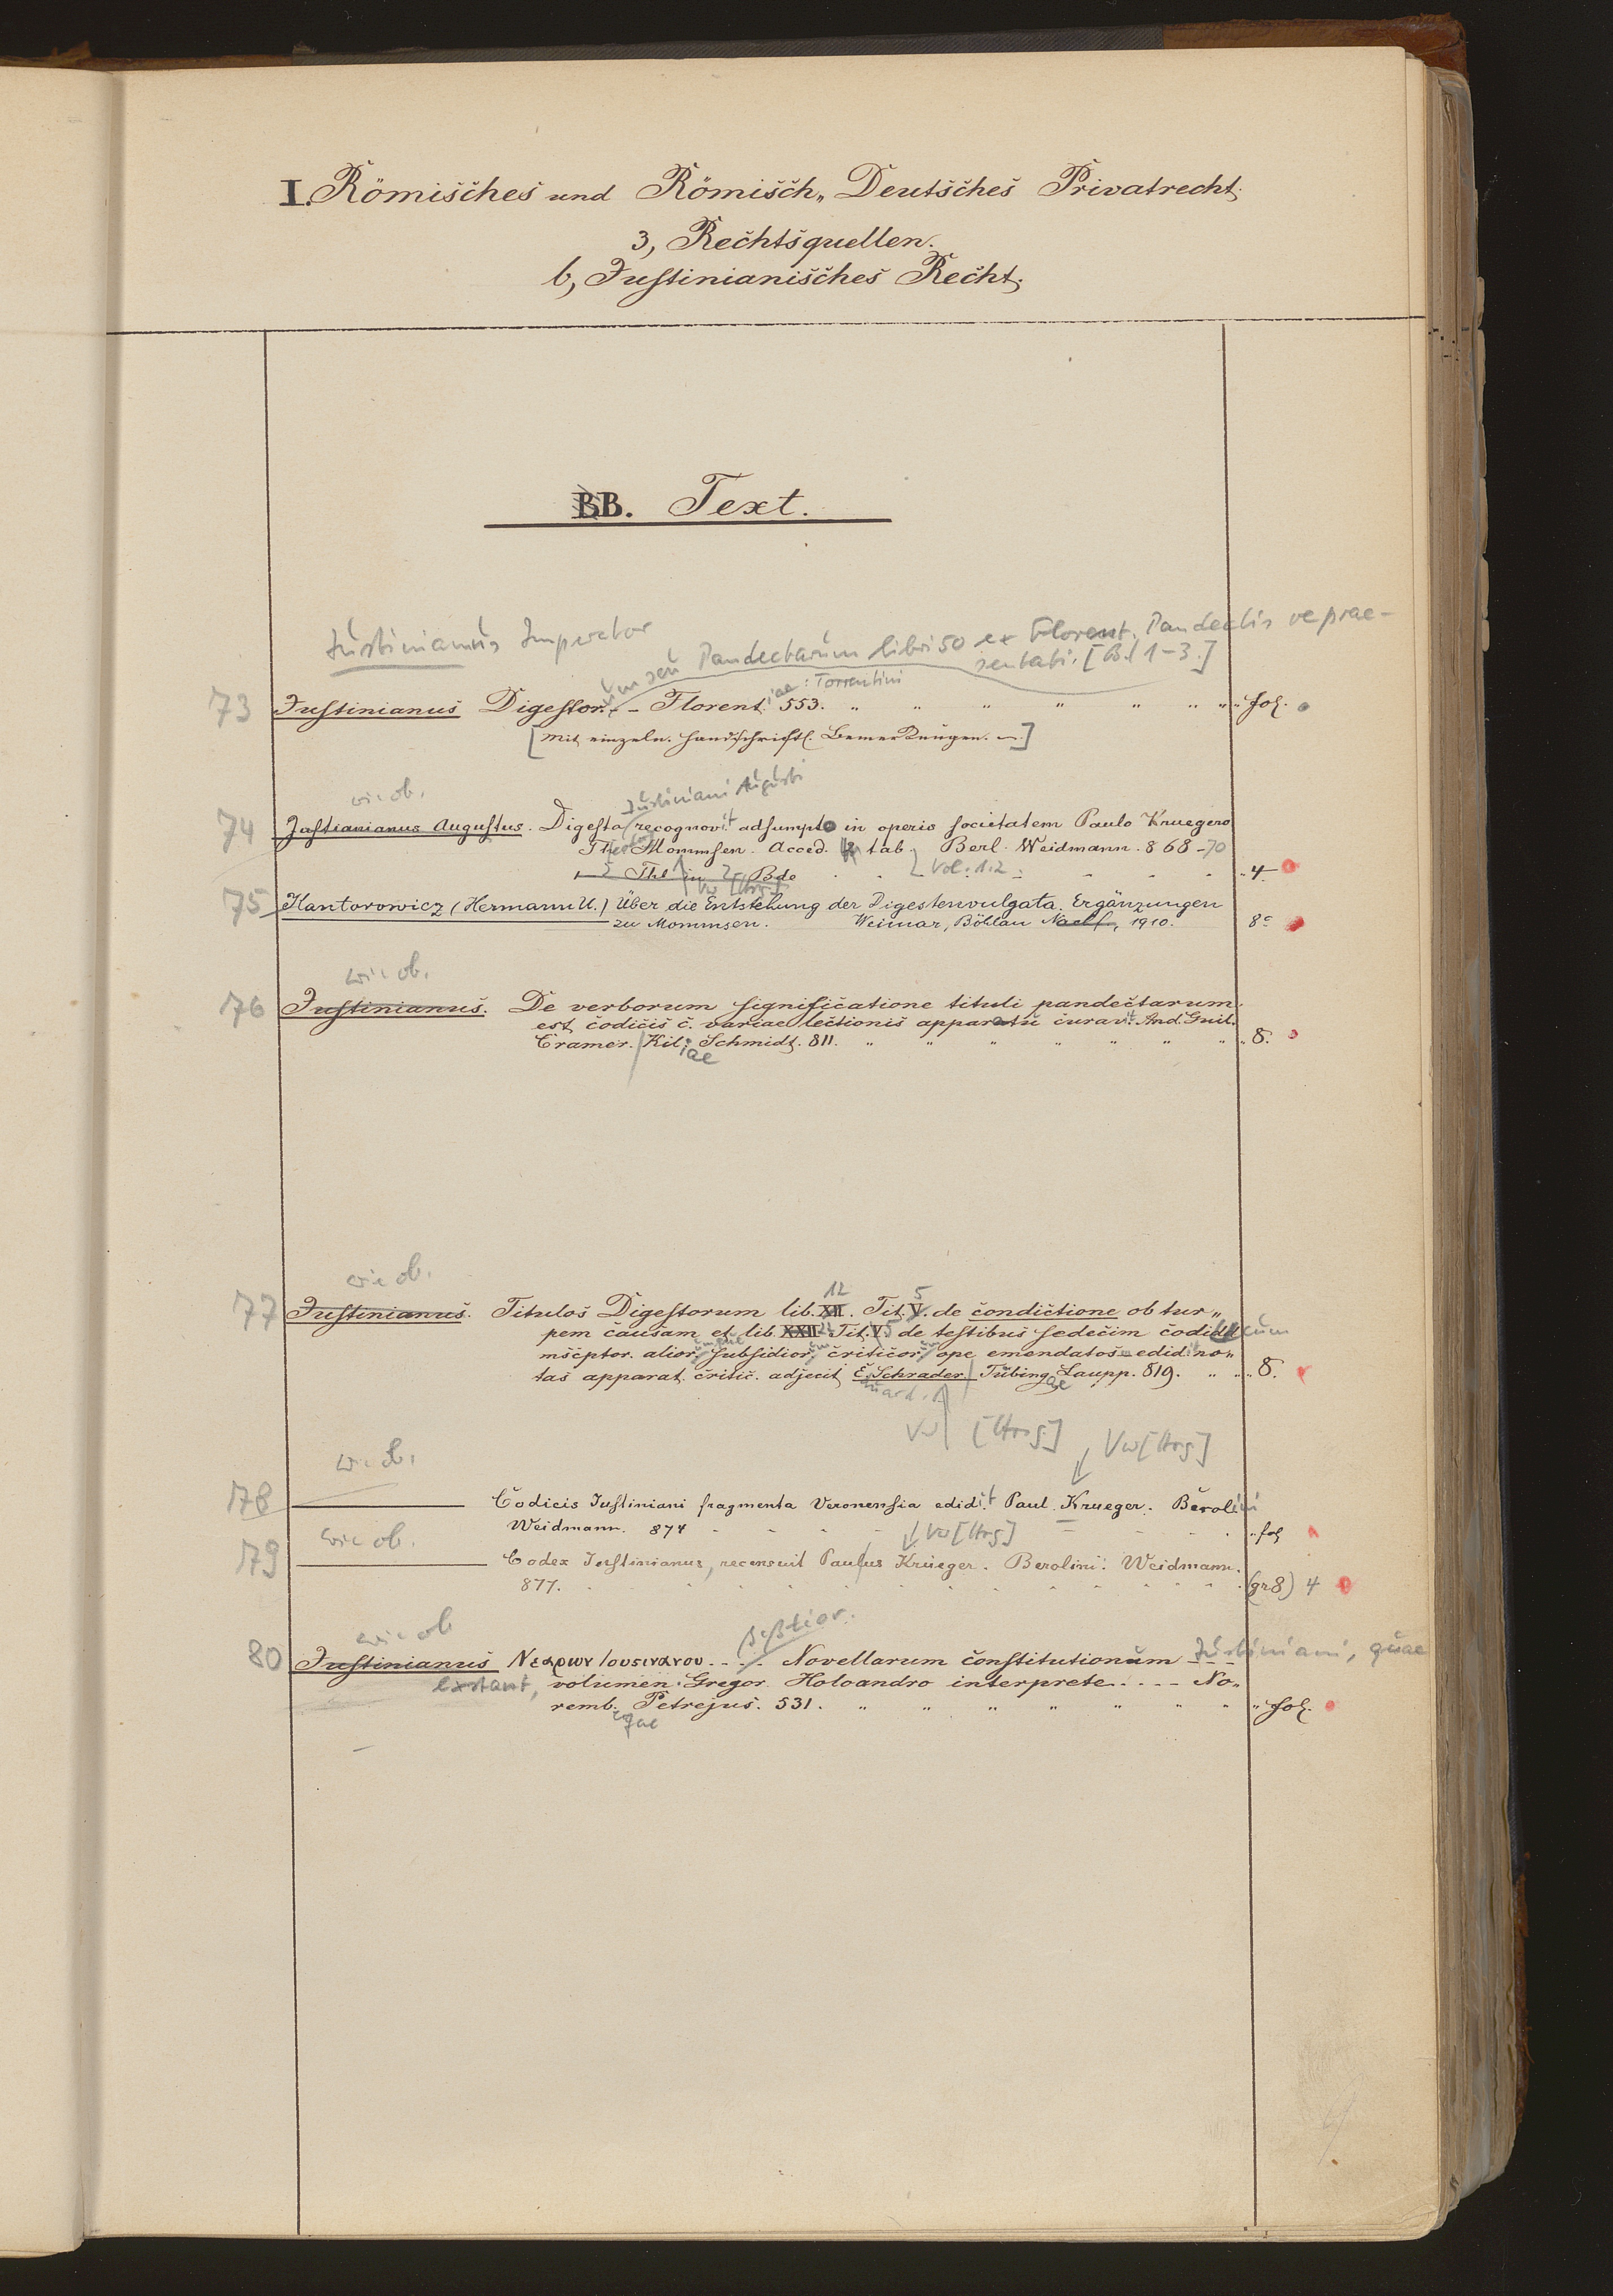 I. Römisches und Römisch„ Deutsches Privatrecht.
3, Rechtsquellen.
b, Justinianisches Recht.
BB. Text.
Justinianus Imperator
um seu Pandectarum libri 50 ex Florent. Pandectis reprae-
sentati. [Bd 1-3.]
iae : Torrentini
73 Justinianus Digestor. - - Florent. 553. " " " " " " " fol.
[Mit einzeln. handschriftl. Bemerkungen.]
wie ob. Justiniani Augusti
74 Justinianus Augustus. Digesta recognovit adsumpto in operis societatem Paulo Kruegero
Th. Mommsen. Acced. tab. Berl. Weidmann. 868-70
Thl in 2 Bde Vol. 1.2. 4
Vw [Hrsg.]
75 Kantorowicz (Hermann U.) Über die Entstehung der Digestenvulgata. Ergänzungen
zu Mommsen. Weimar, Böhlau Nachf, 1910. 8°
wie ob.
76 Justinianus. De verborum significatione tituli pandectarum
est codicis c. variae lectionis apparatu curavit And. Guil.
Cramer. Kil. Schmidt. 811. " " " " " " " 8.
iae
wie ob. 12 5
77 Justinianus. Titulos Digestorum lib. XII. Tit. V. de condictione ob tur„
pem causam et lib. XXII 22 Tit. V. 5 de testibus sedecim codi cum
mscptor. alior. subsidior. criticor. ope emendatos edid. no„
tas apparat. critic. adjecit E. Schrader. Tubing. Laupp. 819. " " 8.
uard. ae
Vw [Hrsg.] Vw [Hrsg]
wie ob.
78 Codicis Justiniani fragmenta Veronensia edidit Paul. Krueger. Berolini
Weidmann. 874 fol
wie ob. Vw [Hrsg]
79 Codex Justinianus, recensuit Paulus Krueger. Berolini. Weidmann.
877. (gr 8) 4
wie ob
80 Justinianus Νεαρων Ιουσινανου. - - - Novellarum constitutionum Justiniani, quae
extant, volumen. Gregor. Holoandro interprete. . . . - No„
remb. Petrejus. 531. " " " " " " " fol.
gae